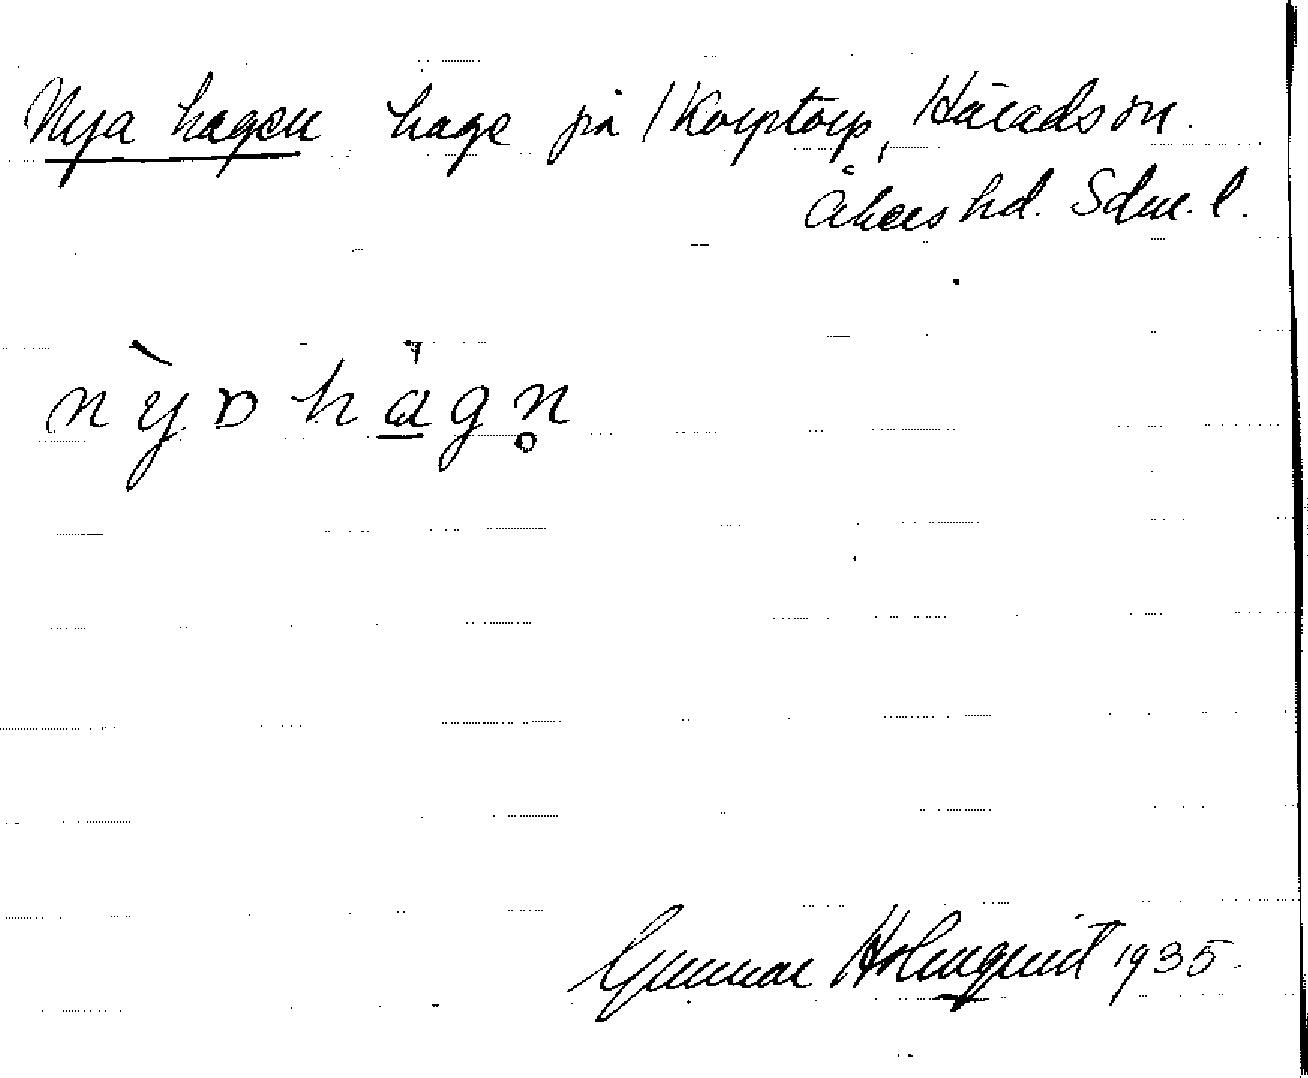 Nya hagen hage på 1 Korptorp, Häradson.
Åkers hd. Sdm. l.
nỳɒ hàgn̥
Gunnar Holmquist 1935.